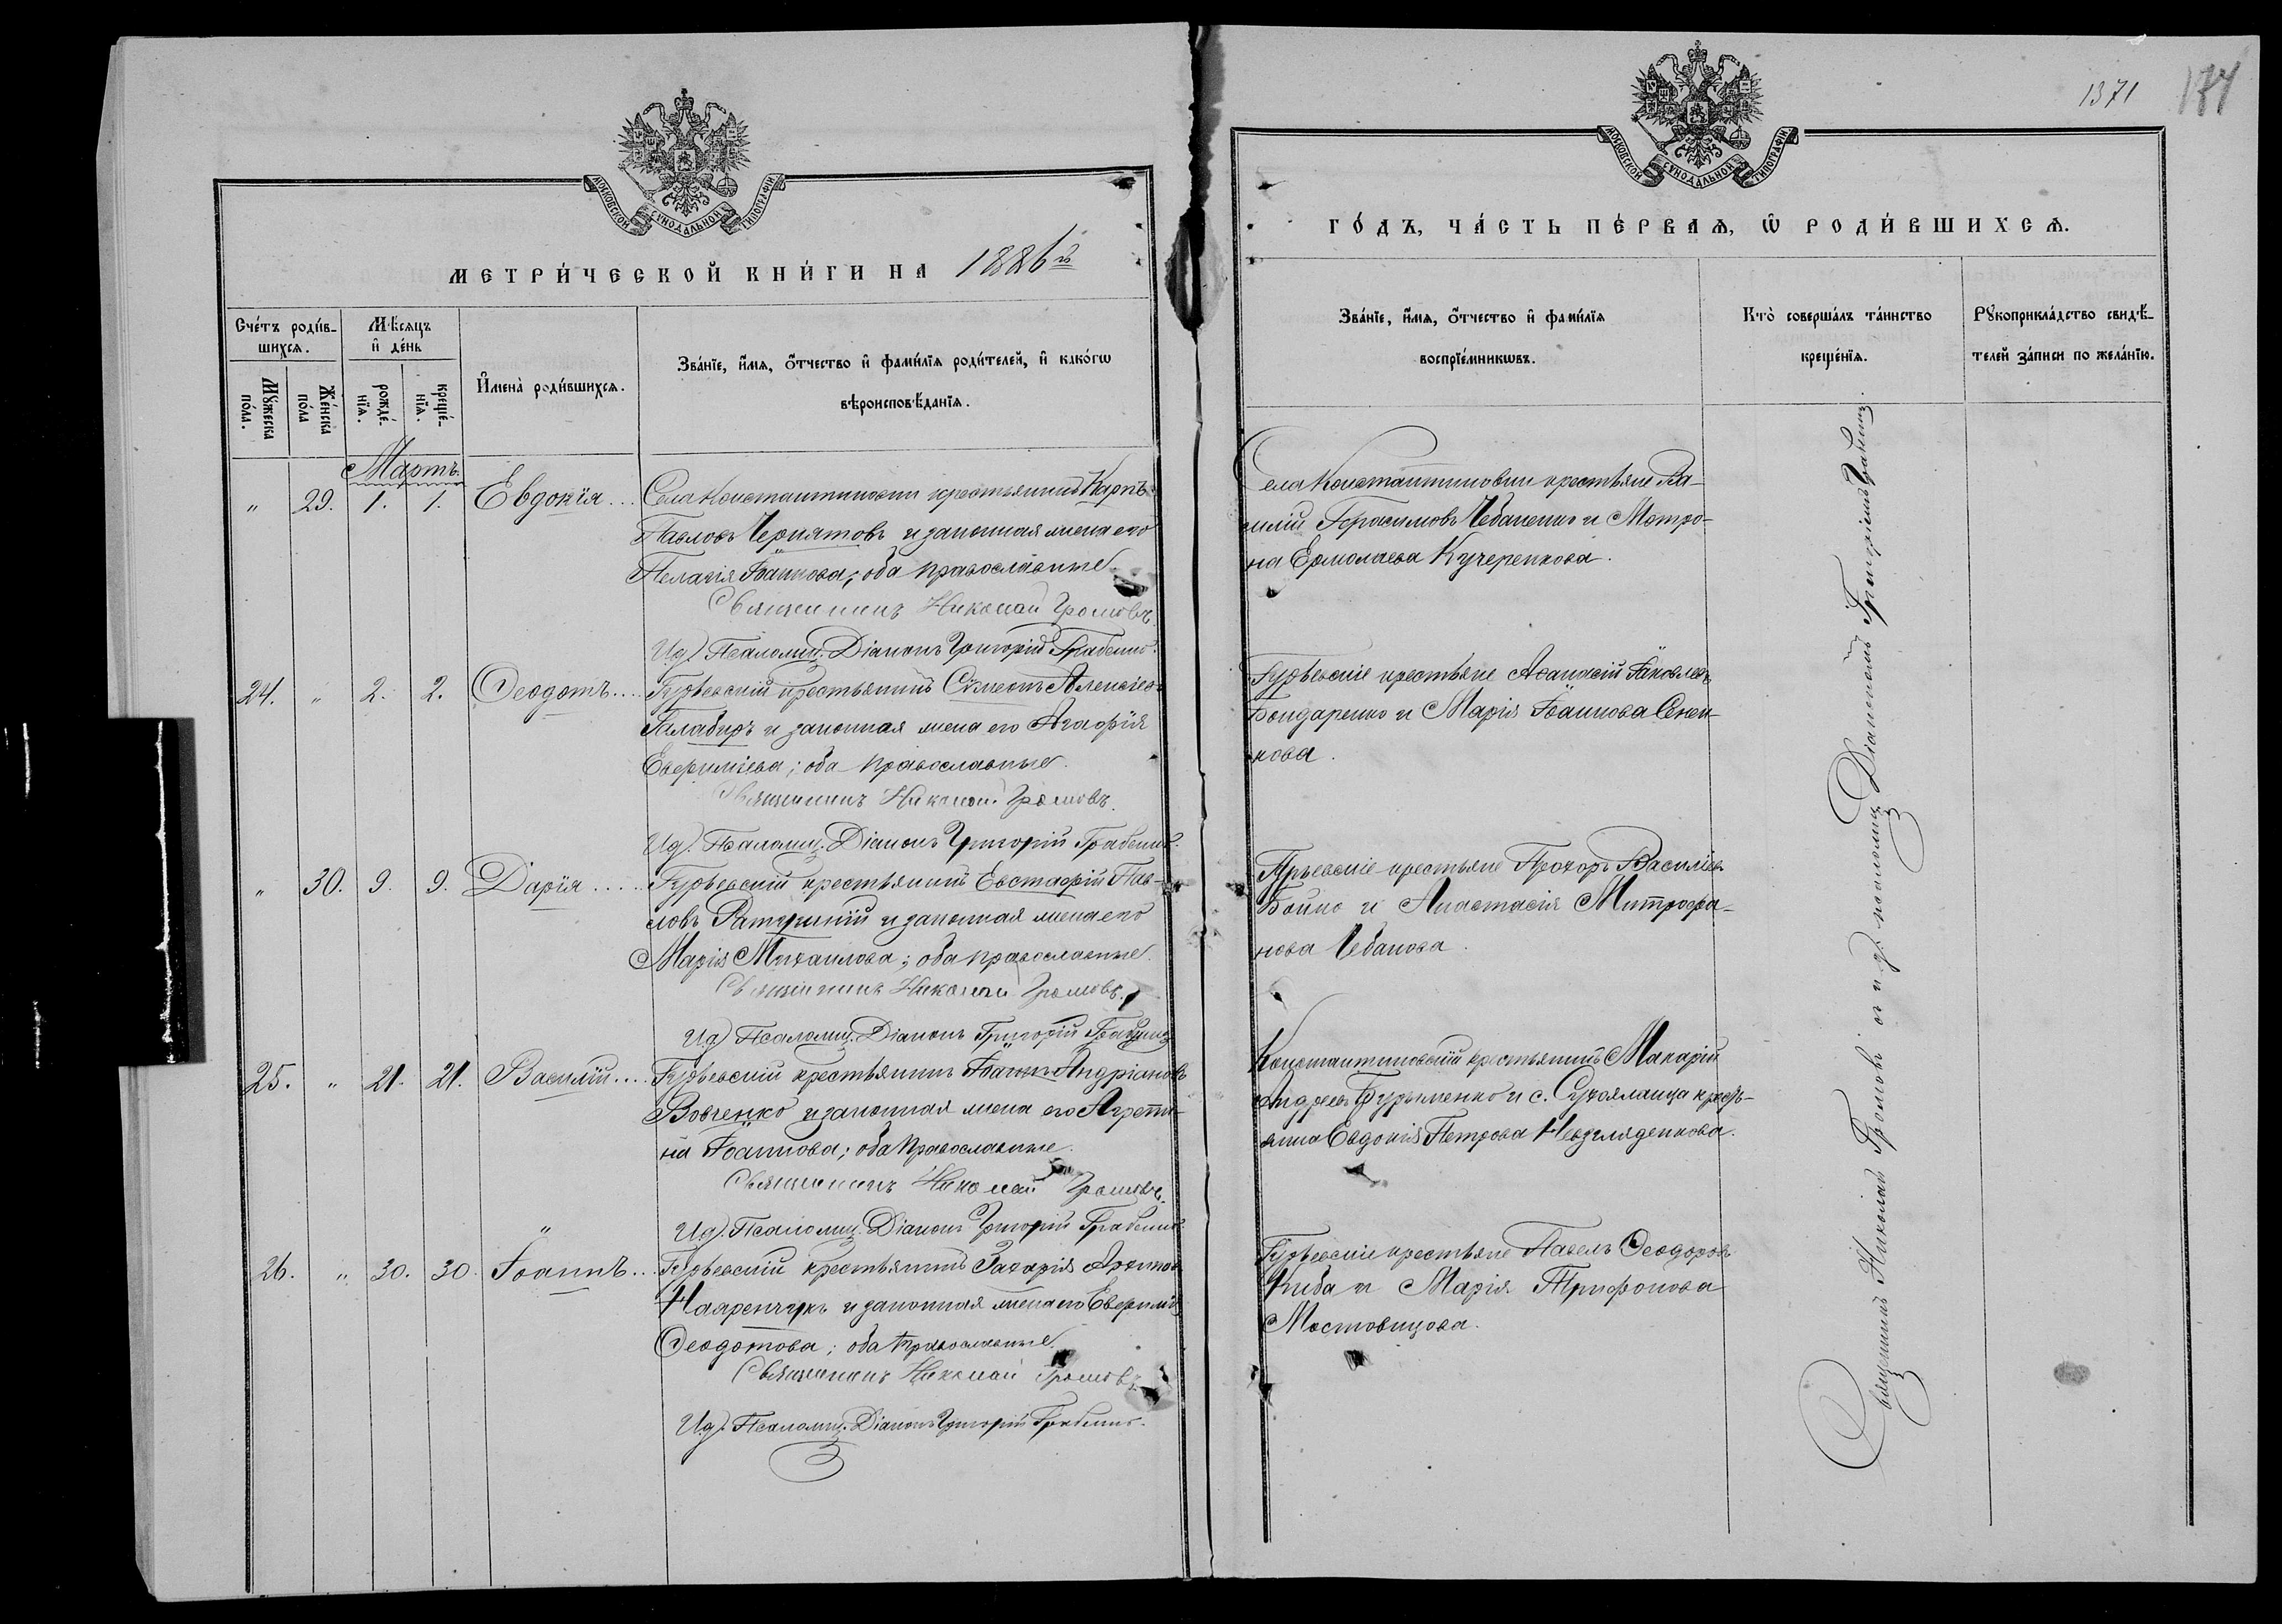 МОСКОВСКОЙ СѴНОДАЛЬНОЙ ТИПОГРАФІИ
МЕТРИ́ЧЕСКОЙ КНИ́ГИ НА 1886й
Сче́тъ роди́в-
шихсѧ.
Мꙋ́жеска
по́ла.
Же́нска
по́ла
Мѣ́сѧцъ
и҆ де́нь
рожде́-
нїѧ.
креще́-
нїѧ.
И҆мена̀ роди́вшихсѧ.
Зва́нїе, и҆́мѧ, ѻ҆́тчество и҆ фами́лїѧ роди́телей, и҆ како́гѡ
вѣроисповѣ́данїѧ.
Мартъ.
" 29. 1. 1. Евдокія... Села Константиновки крестьянинъ Карпъ
Павловъ Чернятовъ и законная жена его
Пелагія Іоаннова; оба православные
Священникъ Николай Громовъ
Ид. Псаломщ. Діаконъ Григорій Грабенко
24. " 2. 2. Ѳеодотъ.... Гурьевскій крестьянинъ Сѵмеонъ Алексіев
и законная жена его Агафія
Евфиміева; оба православные.
Священникъ Николай Громовъ.
Ид. Псаломщ. Діаконъ Григорій Грабенко.
" 30. 9. 9. Дарія..... Гурьевскій крестьянинъ Евстафій Пав-
ловъ и законная жена его
Марія Михаилова; оба православные.
Священникъ Николай Громовъ.
Ид. Псаломщ. Діаконъ Григорій
25. " 21. 21. Василій.... Гурьевскій крестьянинъ Іоаннъ Андріановъ
Вовченко и законная жена его Агрепи-
на Іоаннова; оба православные.
Священникъ Николай Громовъ.
Ид. Псаломщ. Діаконъ Григорій Грабенко
26. " 30. 30. Іоаннъ... Гурьевскій крестьянинъ Захарія Архипов
и законная жена его Евфимія
Ѳеодотова; оба православные.
Священникъ Николай Громовъ
Ид. Псаломщ. Діаконъ Григорій Грабенко.
1371
174
МОСКОВСКОЙ СѴНОДАЛЬНОЙ ТИПОГРАФІИ
ГО́ДЪ, ЧА́СТЬ ПЕ́РВАѦ, Ѿ РОДИ́ВШИХСѦ.
Зва́нїе, и҆́мѧ, ѻ҆́тчество и҆ фами́лїѧ
воспрїе́мникѡвъ.
Кто̀ соверша́лъ та́инство
креще́нїѧ.
Рꙋкоприкла́дство свидѣ́-
телей за́писи по жела́нїю.
Села Константиновки крестьяне Ва-
силій Герасимовъ Чебаненко и Матро-
на Ермолаева Кучеренкова.
Гурьевскіе крестьяне Аѳанасій Іаковлевъ
Бондаренко и Марія Іоаннова Сенен-
кова.
Гурьевскіе крестьяне Прохоръ Василіев
Бойко и Анастасія Митрофа-
нова Чебанова.
Константиновскій крестьянинъ Макарій
Андреевъ Бурыменко и с. Сухояланца кресть-
янка Евдокія Петрова Невзгляденкова.
Гурьевскіе крестьяне Павелъ Ѳеодоровъ
Киба и Марія Трифонова
Мостовщова.
Священникъ Николай Громовъ съ и. д. псаломщ. Діакономъ Григоріемъ Грабенко.